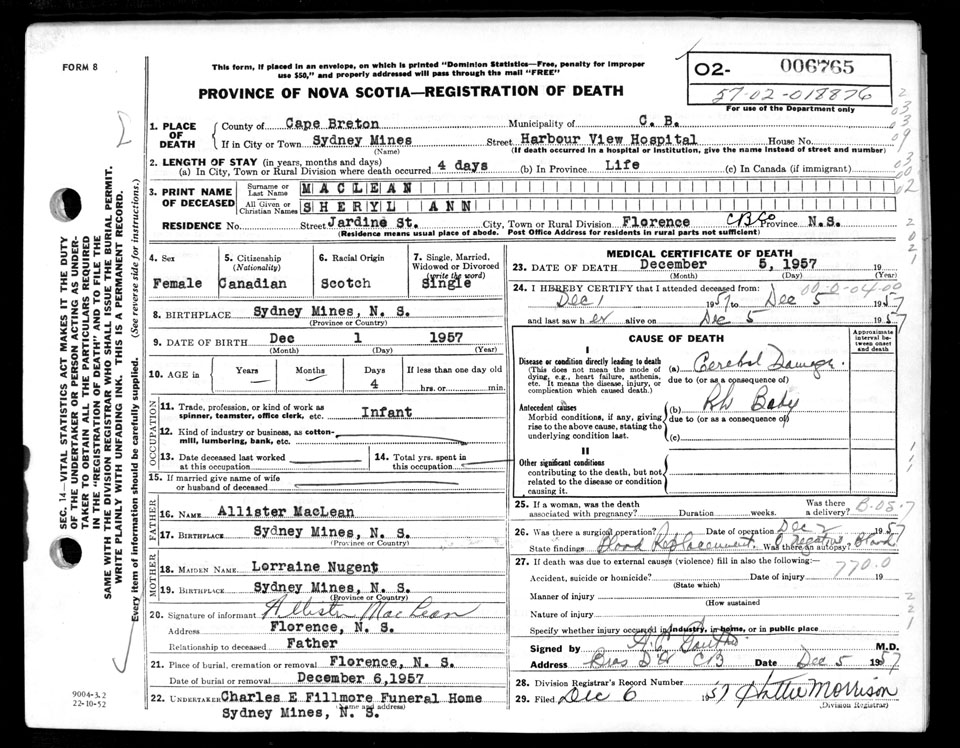 FORM 8
This form, if placed in an envelope, on which is printed "Dominion Statistics—Free, penalty for improper
use $50," and properly addressed will pass through the mail "FREE"
O2- 006765
57-02-018876
For use of the Department only
PROVINCE OF NOVA SCOTIA—REGISTRATION OF DEATH
1. PLACE OF DEATH
County of Cape Breton Municipality of C. B.
If in City or Town Sydney Mines Street Harbour View Hospital House No.
(Name) (If death occurred in a hospital or institution, give the name instead of street and number)
2. LENGTH OF STAY (in years, months and days)
(a) In City, Town or Rural Division where death occurred 4 days (b) In Province Life (c) In Canada (if immigrant)
3. PRINT NAME OF DECEASED
Surname or Last Name MACLEAN
All Given or Christian Names SHERYL ANN
RESIDENCE No. Street Jardine St. City, Town or Rural Division Florence CBCo Province N.S.
(Residence means usual place of abode. Post Office Address for residents in rural parts not sufficient)
4. Sex
Female
5. Citizenship (Nationality)
Canadian
6. Racial Origin
Scotch
7. Single, Married, Widowed or Divorced (write the word)
Single
8. BIRTHPLACE Sydney Mines, N. S.
(Province or Country)
9. DATE OF BIRTH Dec 1 1957
(Month) (Day) (Year)
10. AGE in Years Months Days If less than one day old
4 hrs. or min.
OCCUPATION
11. Trade, profession, or kind of work as spinner, teamster, office clerk, etc. Infant
12. Kind of industry or business, as cotton-mill, lumbering, bank, etc.
13. Date deceased last worked at this occupation
14. Total yrs. spent in this occupation
15. If married give name of wife or husband of deceased
FATHER
16. NAME Allister MacLean
17. BIRTHPLACE Sydney Mines, N. S.
(Province or Country)
MOTHER
18. MAIDEN NAME Lorraine Nugent
19. BIRTHPLACE Sydney Mines, N. S.
(Province or Country)
20. Signature of informant Allister MacLean
Address Florence, N. S.
Relationship to deceased Father
21. Place of burial, cremation or removal Florence, N. S.
Date of burial or removal December 6,1957
22. UNDERTAKER Charles E Fillmore Funeral Home
(Name and address)
Sydney Mines, N. S.
MEDICAL CERTIFICATE OF DEATH
23. DATE OF DEATH December 5, 1957 19
(Month) (Day) (Year)
24. I HEREBY CERTIFY that I attended deceased from:
Dec 1 1957 to Dec 5 1957
and last saw her alive on Dec 5 1957
CAUSE OF DEATH
Approximate interval between onset and death
I
Disease or condition directly leading to death
(This does not mean the mode of dying, e.g., heart failure, asthenia, etc. It means the disease, injury, or complication which caused death.)
(a) Cerebral Damage
due to (or as a consequence of)
Antecedent causes
Morbid conditions, if any, giving rise to the above cause, stating the underlying condition last.
(b) Rh Baby
due to (or as a consequence of)
(c)
II
Other significant conditions
contributing to the death, but not related to the disease or condition causing it.
25. If a woman, was the death associated with pregnancy? Duration weeks. Was there a delivery?
26. Was there a surgical operation? Date of operation Dec 2 1957
State findings Blood Replacement Was there an autopsy?
27. If death was due to external causes (violence) fill in also the following:—
770.0
Accident, suicide or homicide? Date of injury 19
(State which)
Manner of injury
(How sustained
Nature of injury
Specify whether injury occurred in industry, in home, or in public place
Signed by M.D.
Address Bras D'Or CB Date Dec 5 1957
28. Division Registrar's Record Number
29. Filed Dec 6 1957 Hattie Morrison
(Division Registrar)
SEC. 14—VITAL STATISTICS ACT MAKES IT THE DUTY
OF THE UNDERTAKER OR PERSON ACTING AS UNDER-
TAKER TO OBTAIN ALL THE PARTICULARS REQUIRED
IN THE "REGISTRATION OF DEATH" AND TO FILE THE
SAME WITH THE DIVISION REGISTRAR WHO SHALL ISSUE THE BURIAL PERMIT.
WRITE PLAINLY WITH UNFADING INK. THIS IS A PERMANENT RECORD.
Every item of information should be carefully supplied. (See reverse side for instructions.)
9004-3.2
22-10-52